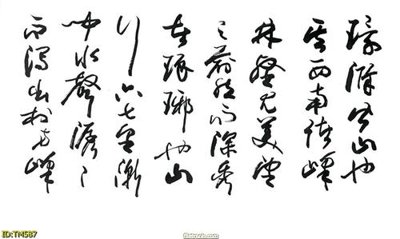 環滁皆山也
其西南諸峰
林壑尤美望
之蔚然而深秀
者琅琊也山
行六七里漸
聞水聲潺潺
而瀉出於兩峰
ID:TM587